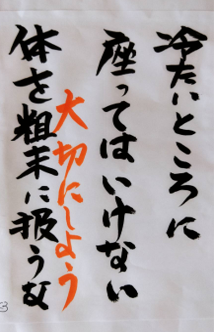 冷たいところに
座ってはいけない
大切にしよう
体を粗末に扱うな